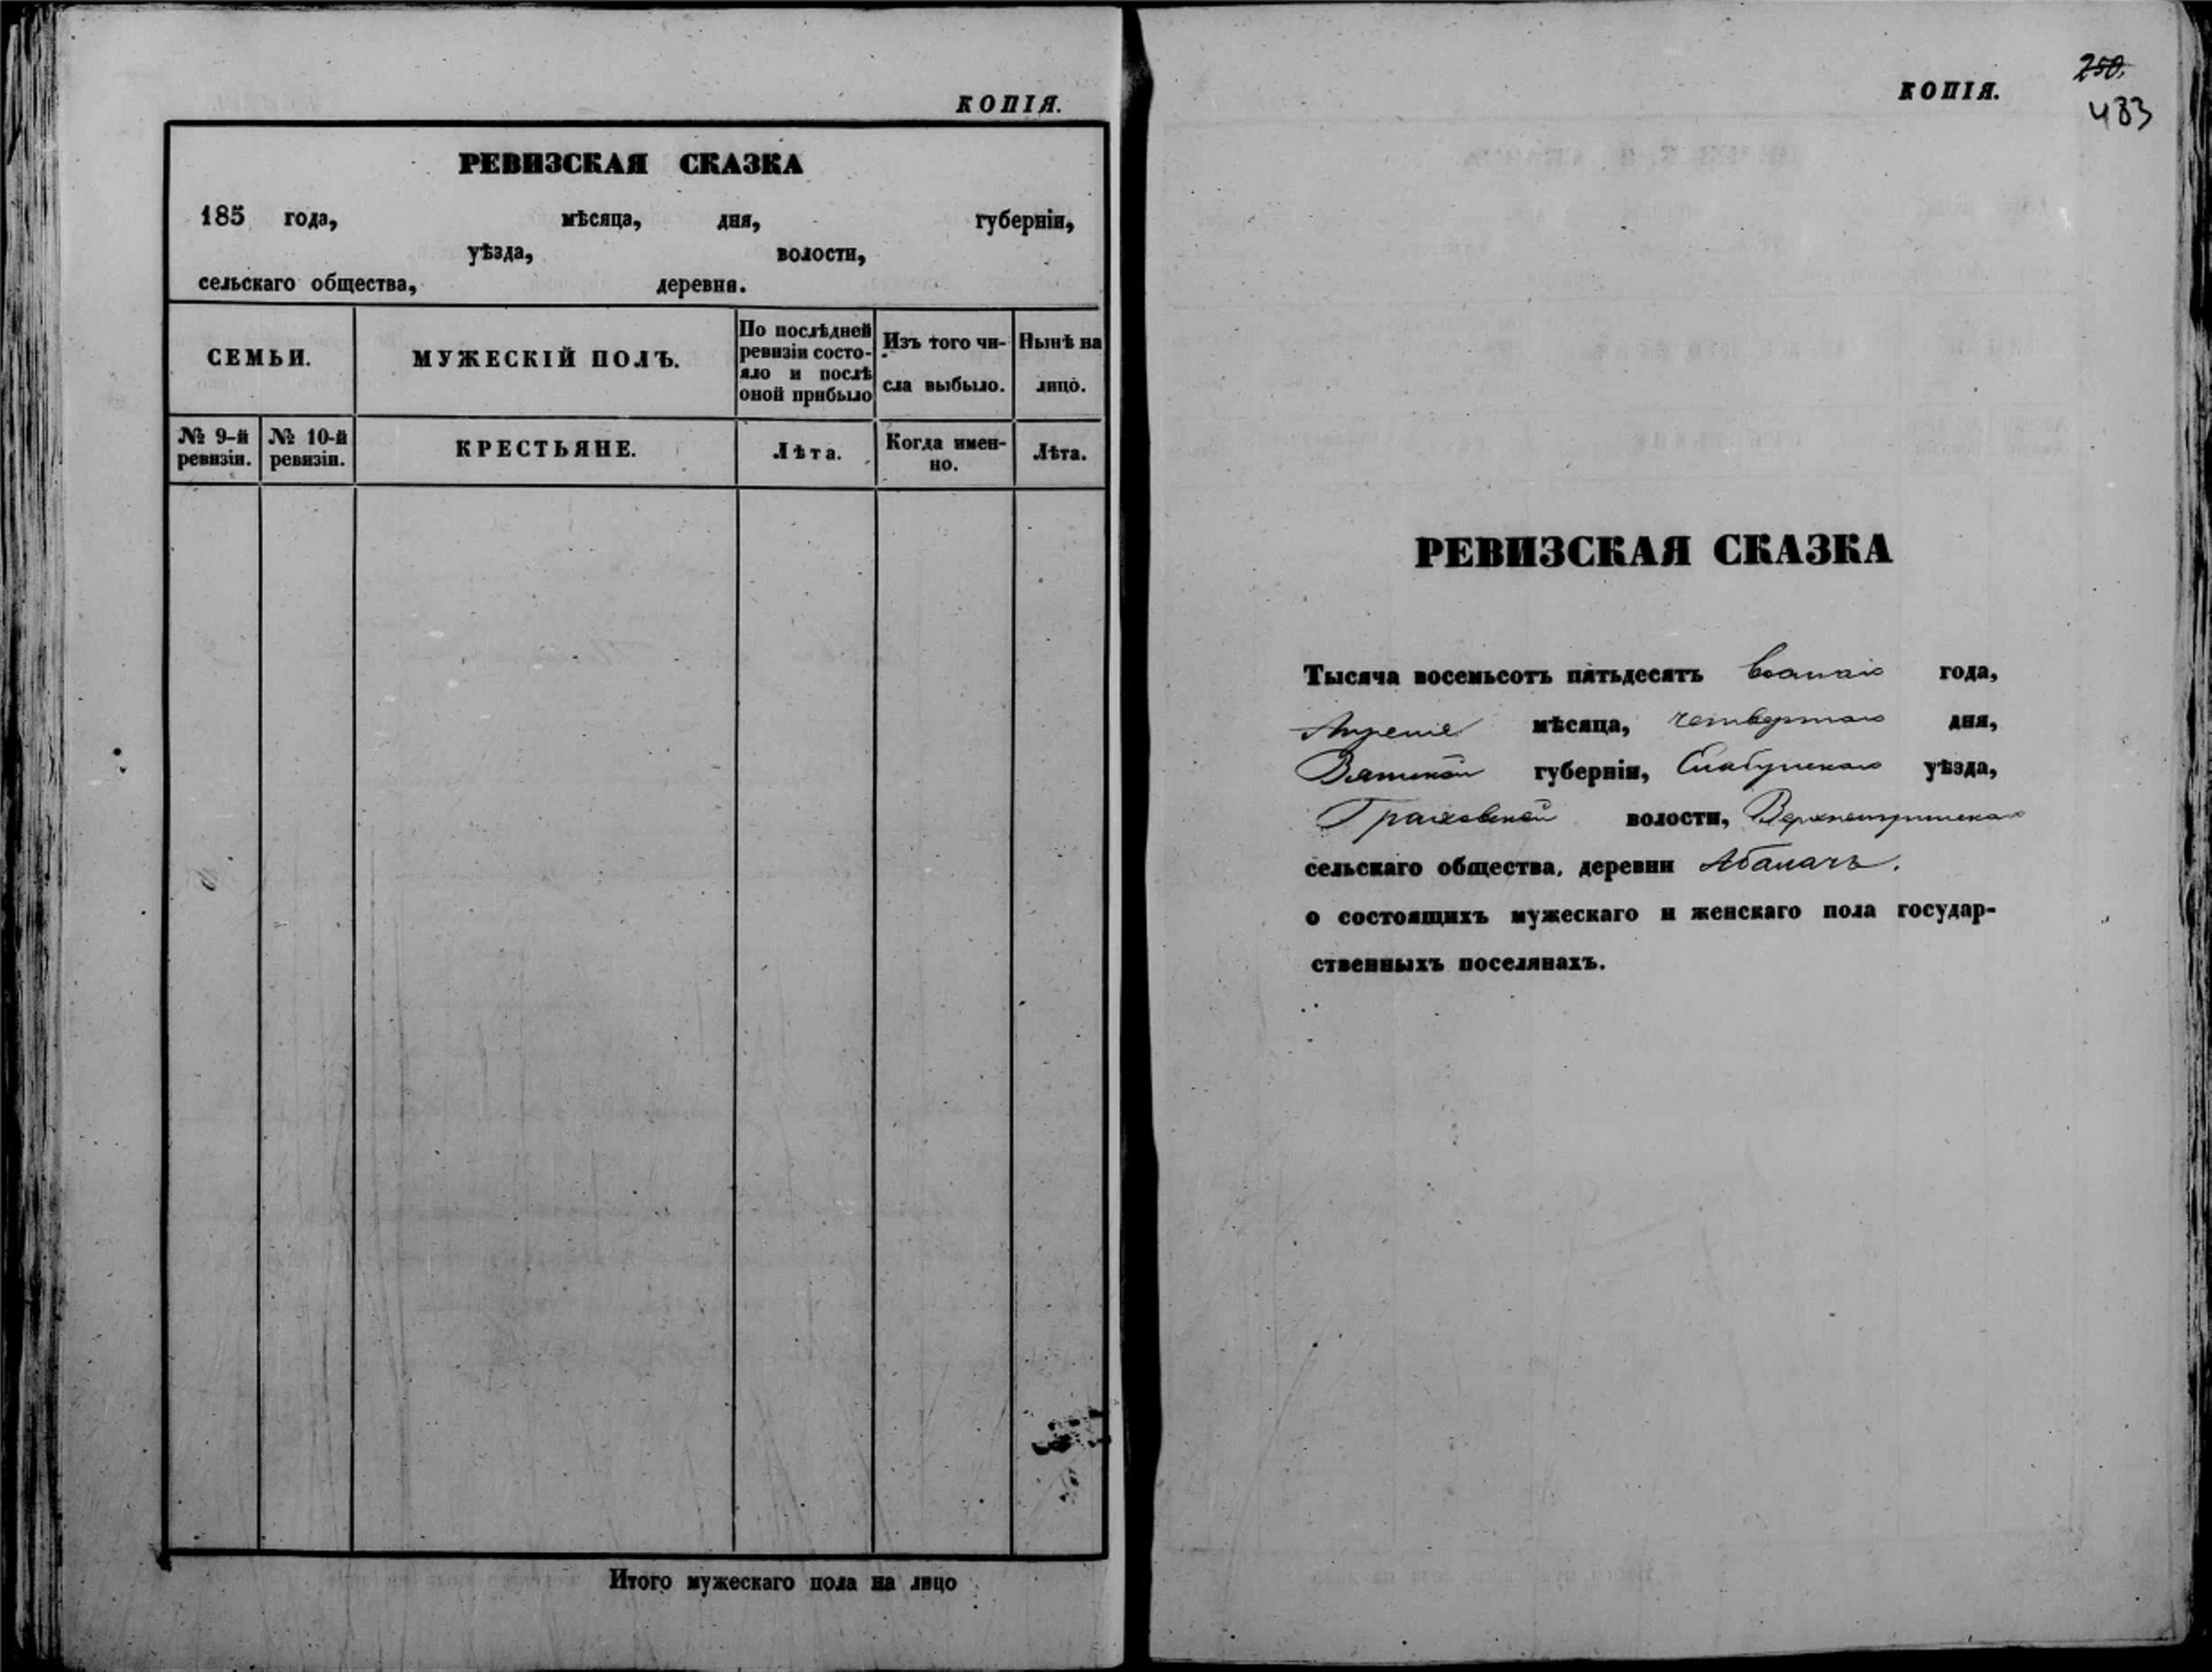 КОПІЯ.
РЕВИЗСКАЯ СКАЗКА
185 года, мѣсяца, дня, губерніи,
уѣзда, волости,
сельскаго общества, деревни.
СЕМЬИ.
МУЖЕСКІЙ ПОЛЪ.
По послѣдней
ревизіи состо-
яло и послѣ
оной прибыло
Изъ того чи-
сла выбыло.
Нынѣ на
лицо.
№ 9-й
ревизіи.
№ 10-й
ревизіи.
КРЕСТЬЯНЕ.
Лѣта.
Когда имен-
но.
Лѣта.
Итого мужескаго пола на лицо
250.
КОПІЯ.
483
РЕВИЗСКАЯ СКАЗКА
Тысяча восемьсотъ пятьдесятъ года,
Апреля мѣсяца, четвертаго дня,
Вятской губерніи, Елабужскаго уѣзда,
Граховской волости,
сельскаго общества, деревни Абалачъ.
о состоящихъ мужескаго и женскаго пола государ-
ственныхъ поселянахъ.